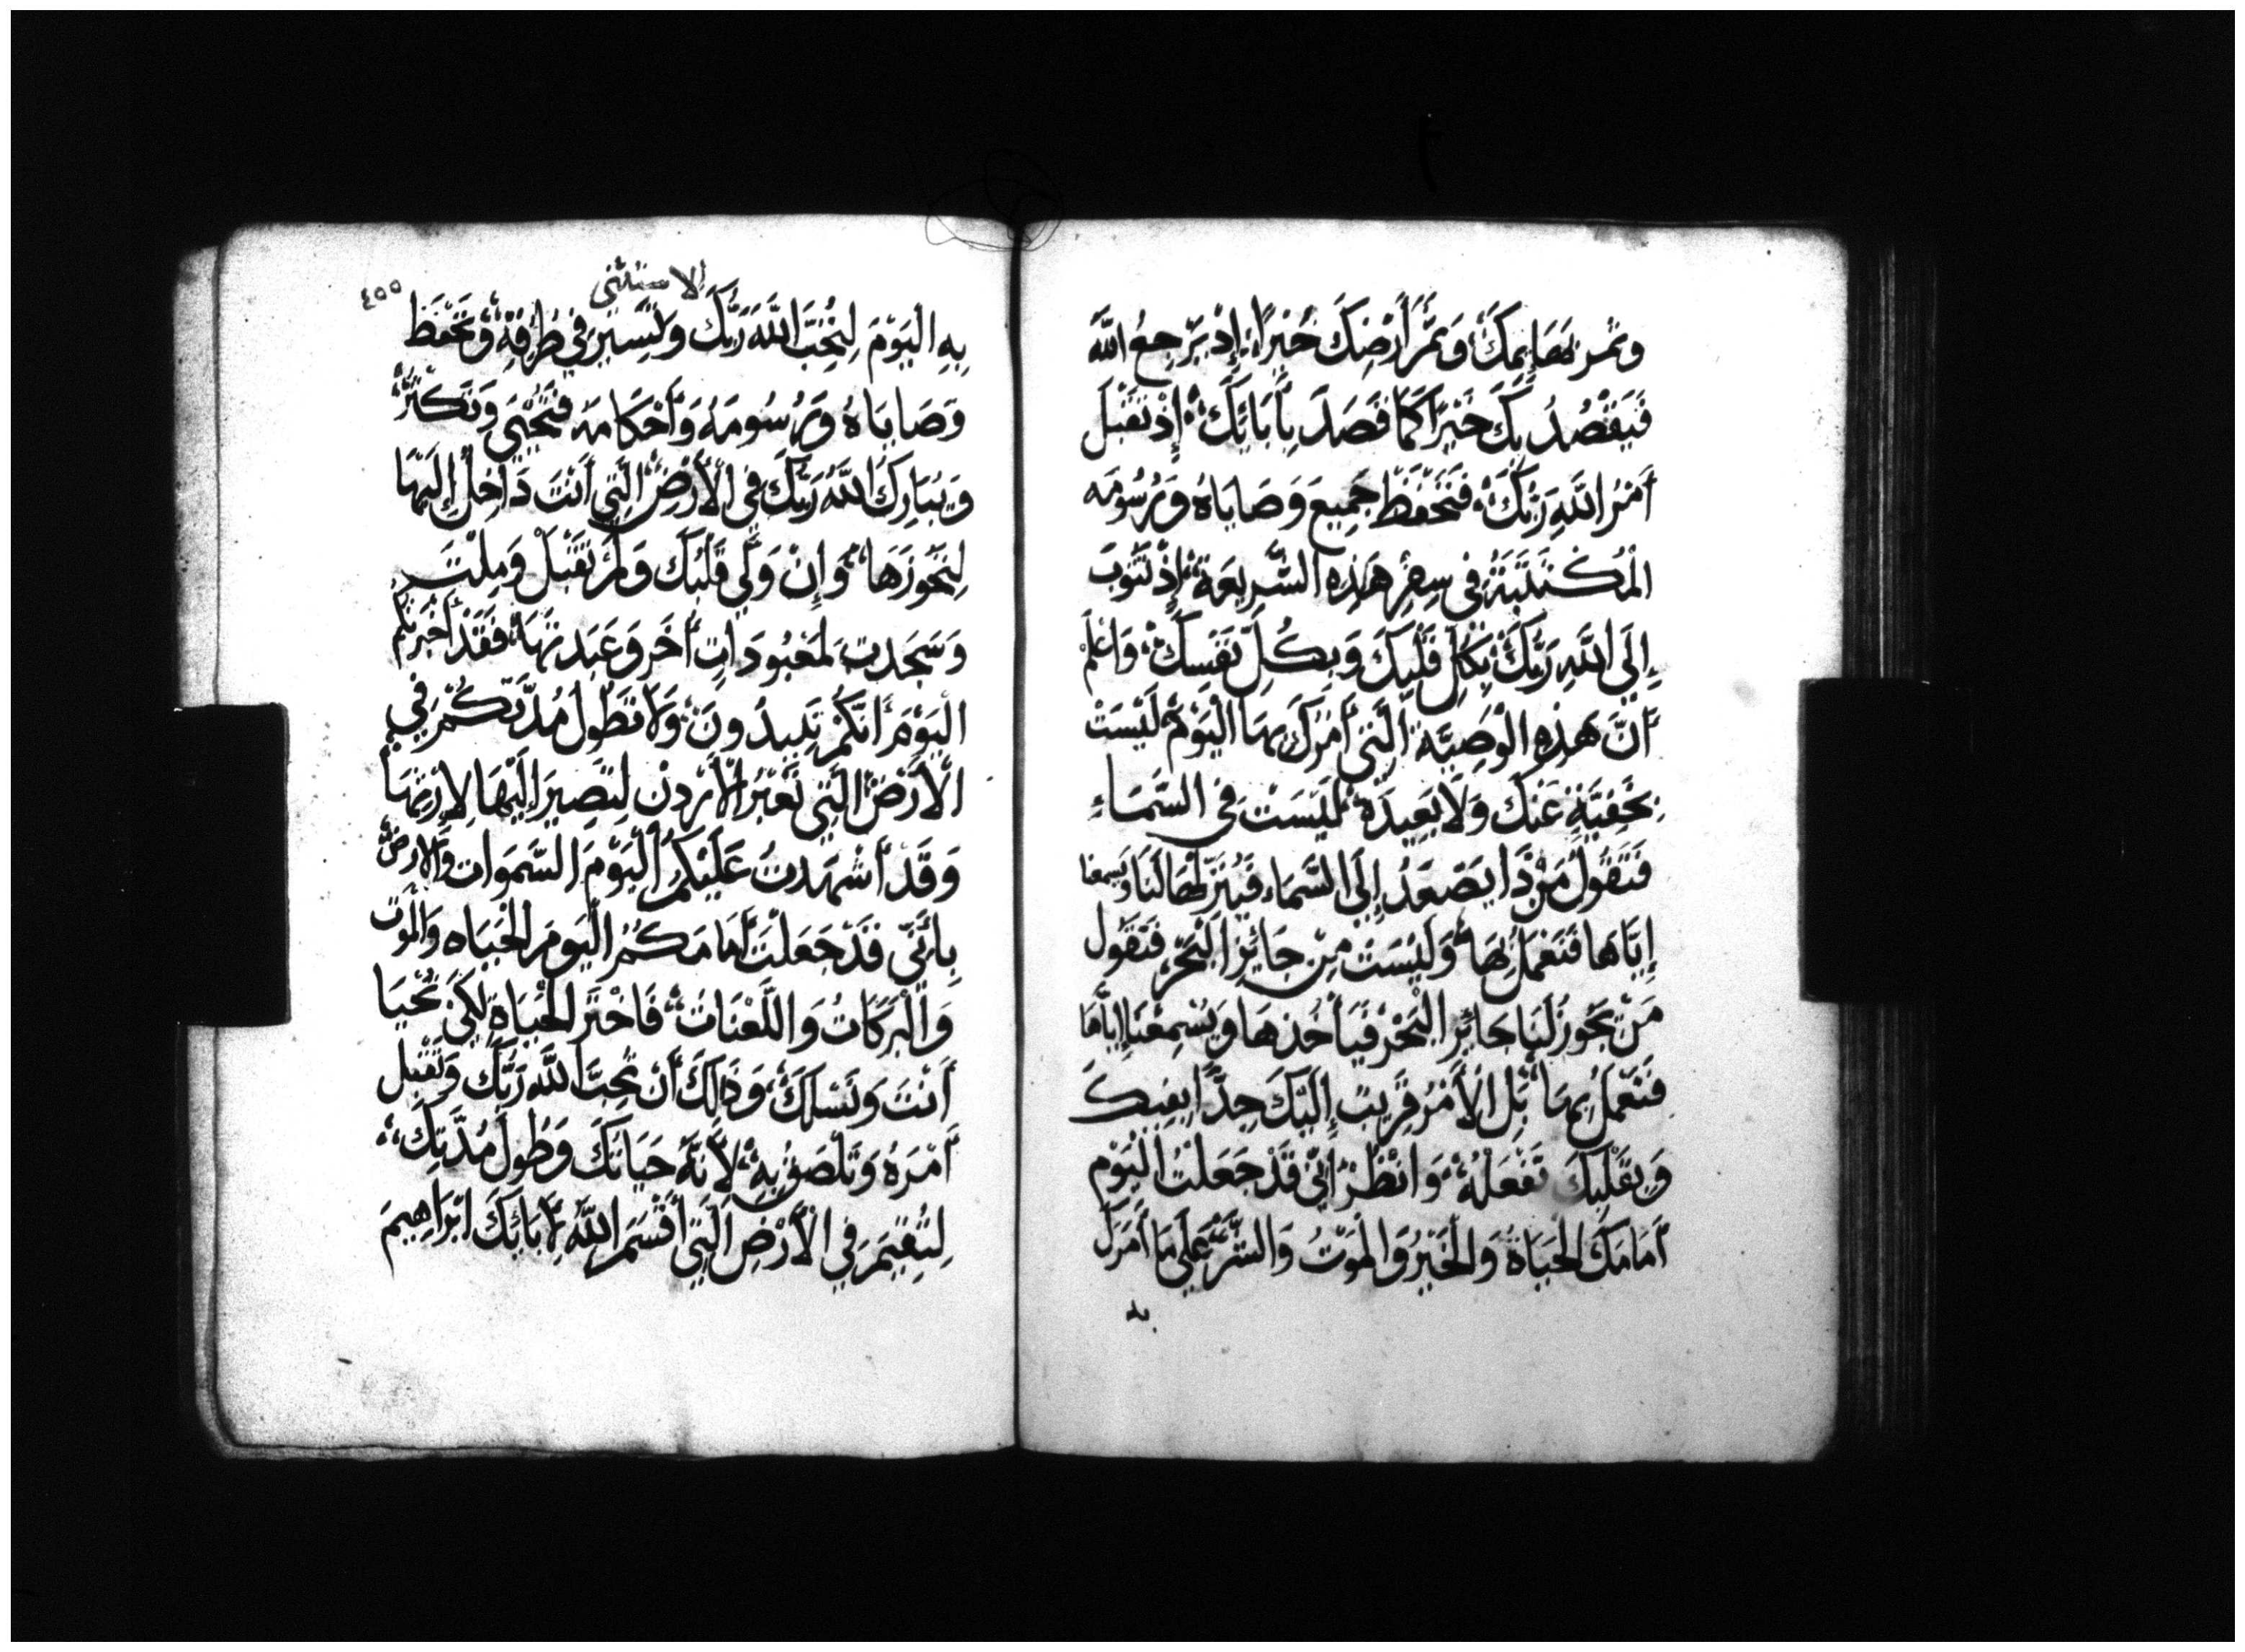 وثمر بَهَايِمِكَ، وَثَمَرُ أَرْضِكَ خَيْرًا، إِذْ يَرْجِعُ اللَّهُ
فَيَقْصُدُ بِكَ خَيْرًا كَمَا قَصَدَ بِأَبَايِكَ، إِذْ تَقْبَلُ
أَمْرَ اللَّهِ رَبِّكَ، فَتَحْفَظُ جَمِيعَ وَصَايَاهُ وَرُسُومَه
الْمُكْتَتَبَةَ فِي سِفْرِ هَذِهِ الشَّرِيعَةِ، إِذْ تَتُوبُ
إِلَى اللَّهِ رَبِّكَ، بِكُلِّ قَلْبِكَ وَبِكُلِّ نَفْسِكَ، وَاعْلَمْ
أَنَّ هَذِهِ الْوَصِيَّةَ الَّتِي أَمَرَكَ بِهَا الْيَوْمَ لَيْسَتْ
بِخَفِيَّةٍ عَنْكَ وَلَا بَعِيدَةٍ، لَيْسَتْ فِي السَّمَاءِ
فَتَقُولُ مَنْ ذَا يَصْعَدُ إِلَى السَّمَاءِ فَيُنَزِّلُهَا لَنَا وَيسمعنا
إِيَّاهَا فَنَعْمَلُ بِهَا، وَلَيْسَتْ مِنْ جَايِزِ الْبَحْرِ فَتَقُولُ
مَنْ يَجُوزُ لَنَا جَايِزَ الْبَحْرِ فَيَأْخُذَهَا وَيُسْمِعْنَا إِيَّاهَا
فَنَعْمَلُ بِهَا، بَلِ الْأَمْرُ قَرِيبٌ إِلَيْكَ جِدًّا بِفِيكَ
وَبِقَلْبِكَ تَفْعَلُهُ، وَانْظُرْ إِنِّي قَدْ جَعَلْتُ الْيَوْمَ
أَمَامَكَ الْحَيَاةَ وَالْخَيْرَ وَالْمَوْتَ وَالشَّرَّ، عَلَى مَا أَمَرَكَ
به
الاستثنى
٤٥٥
بِهِ الْيَوْمَ لِتُحِبَّ اللَّهَ رَبَّكَ وَتَسِيرَ فِي طُرُقِهِ، وَتَحْفَظَ
وَصَايَاهُ وَرُسُومَهُ وَأَحْكَامَهُ فَتَحْيَى وَتَكْثُرُ،
وَيُبَارِكُ اللَّهُ رَبُّكَ فِي الْأَرْضِ الَّتِي أَنْتَ دَاخِلٌ إِلَيْهَا
لِتَحُوزَهَا، وَإِنْ وَلَّى قَلْبُكَ وَلَمْ تَقْبَلْ وَمِلْتَ
وَسَجَدتَ لِمَعْبُودَاتٍ أُخَرَ وَعَبَدتَهَا، فَقَدْ أَخْبَرْتُكُمْ
الْيَوْمَ أَنَّكُمْ تَبِيدُونَ، وَلَا تَطُولُ مُدَّتُكُمْ فِي
الْأَرْضِ الَّتِي تَعْبُرُ الْأُرْدُنَّ لِتَصِيرَ إِلَيْهَا لِإِرْثِهَا
وَقَدْ أَشْهَدتُ عَلَيْكُمُ الْيَوْمَ السَّمَوَاتِ وَالْأَرْضَ
بِأَنِّي قَدْ جَعَلْتُ أَمَامَكُمُ الْيَوْمَ الْحَيَاه وَالْمَوْت
وَالْبَرَكَاتُ وَاللَّعْنَاتُ، فَاخْتَرِ الْحَيَاةَ لِكَيْ تَحْيَا
أَنْتَ وَنَسْلُكَ، وَذَلِكَ أَنْ تُحِبَّ اللَّهَ رَبَّكَ وَتَقْبَلَ
أَمْرَهُ وَتَلْصَقُ بِهِ، لِأَنَّهُ حَيَاتُكَ وَطُولُ مُدَّتِكَ،
لِتُقِيمَ فِي الْأَرْضِ الَّتِي أَقْسَمَ اللَّهُ لِأَبَايِكَ ابْرَاهِيمَ